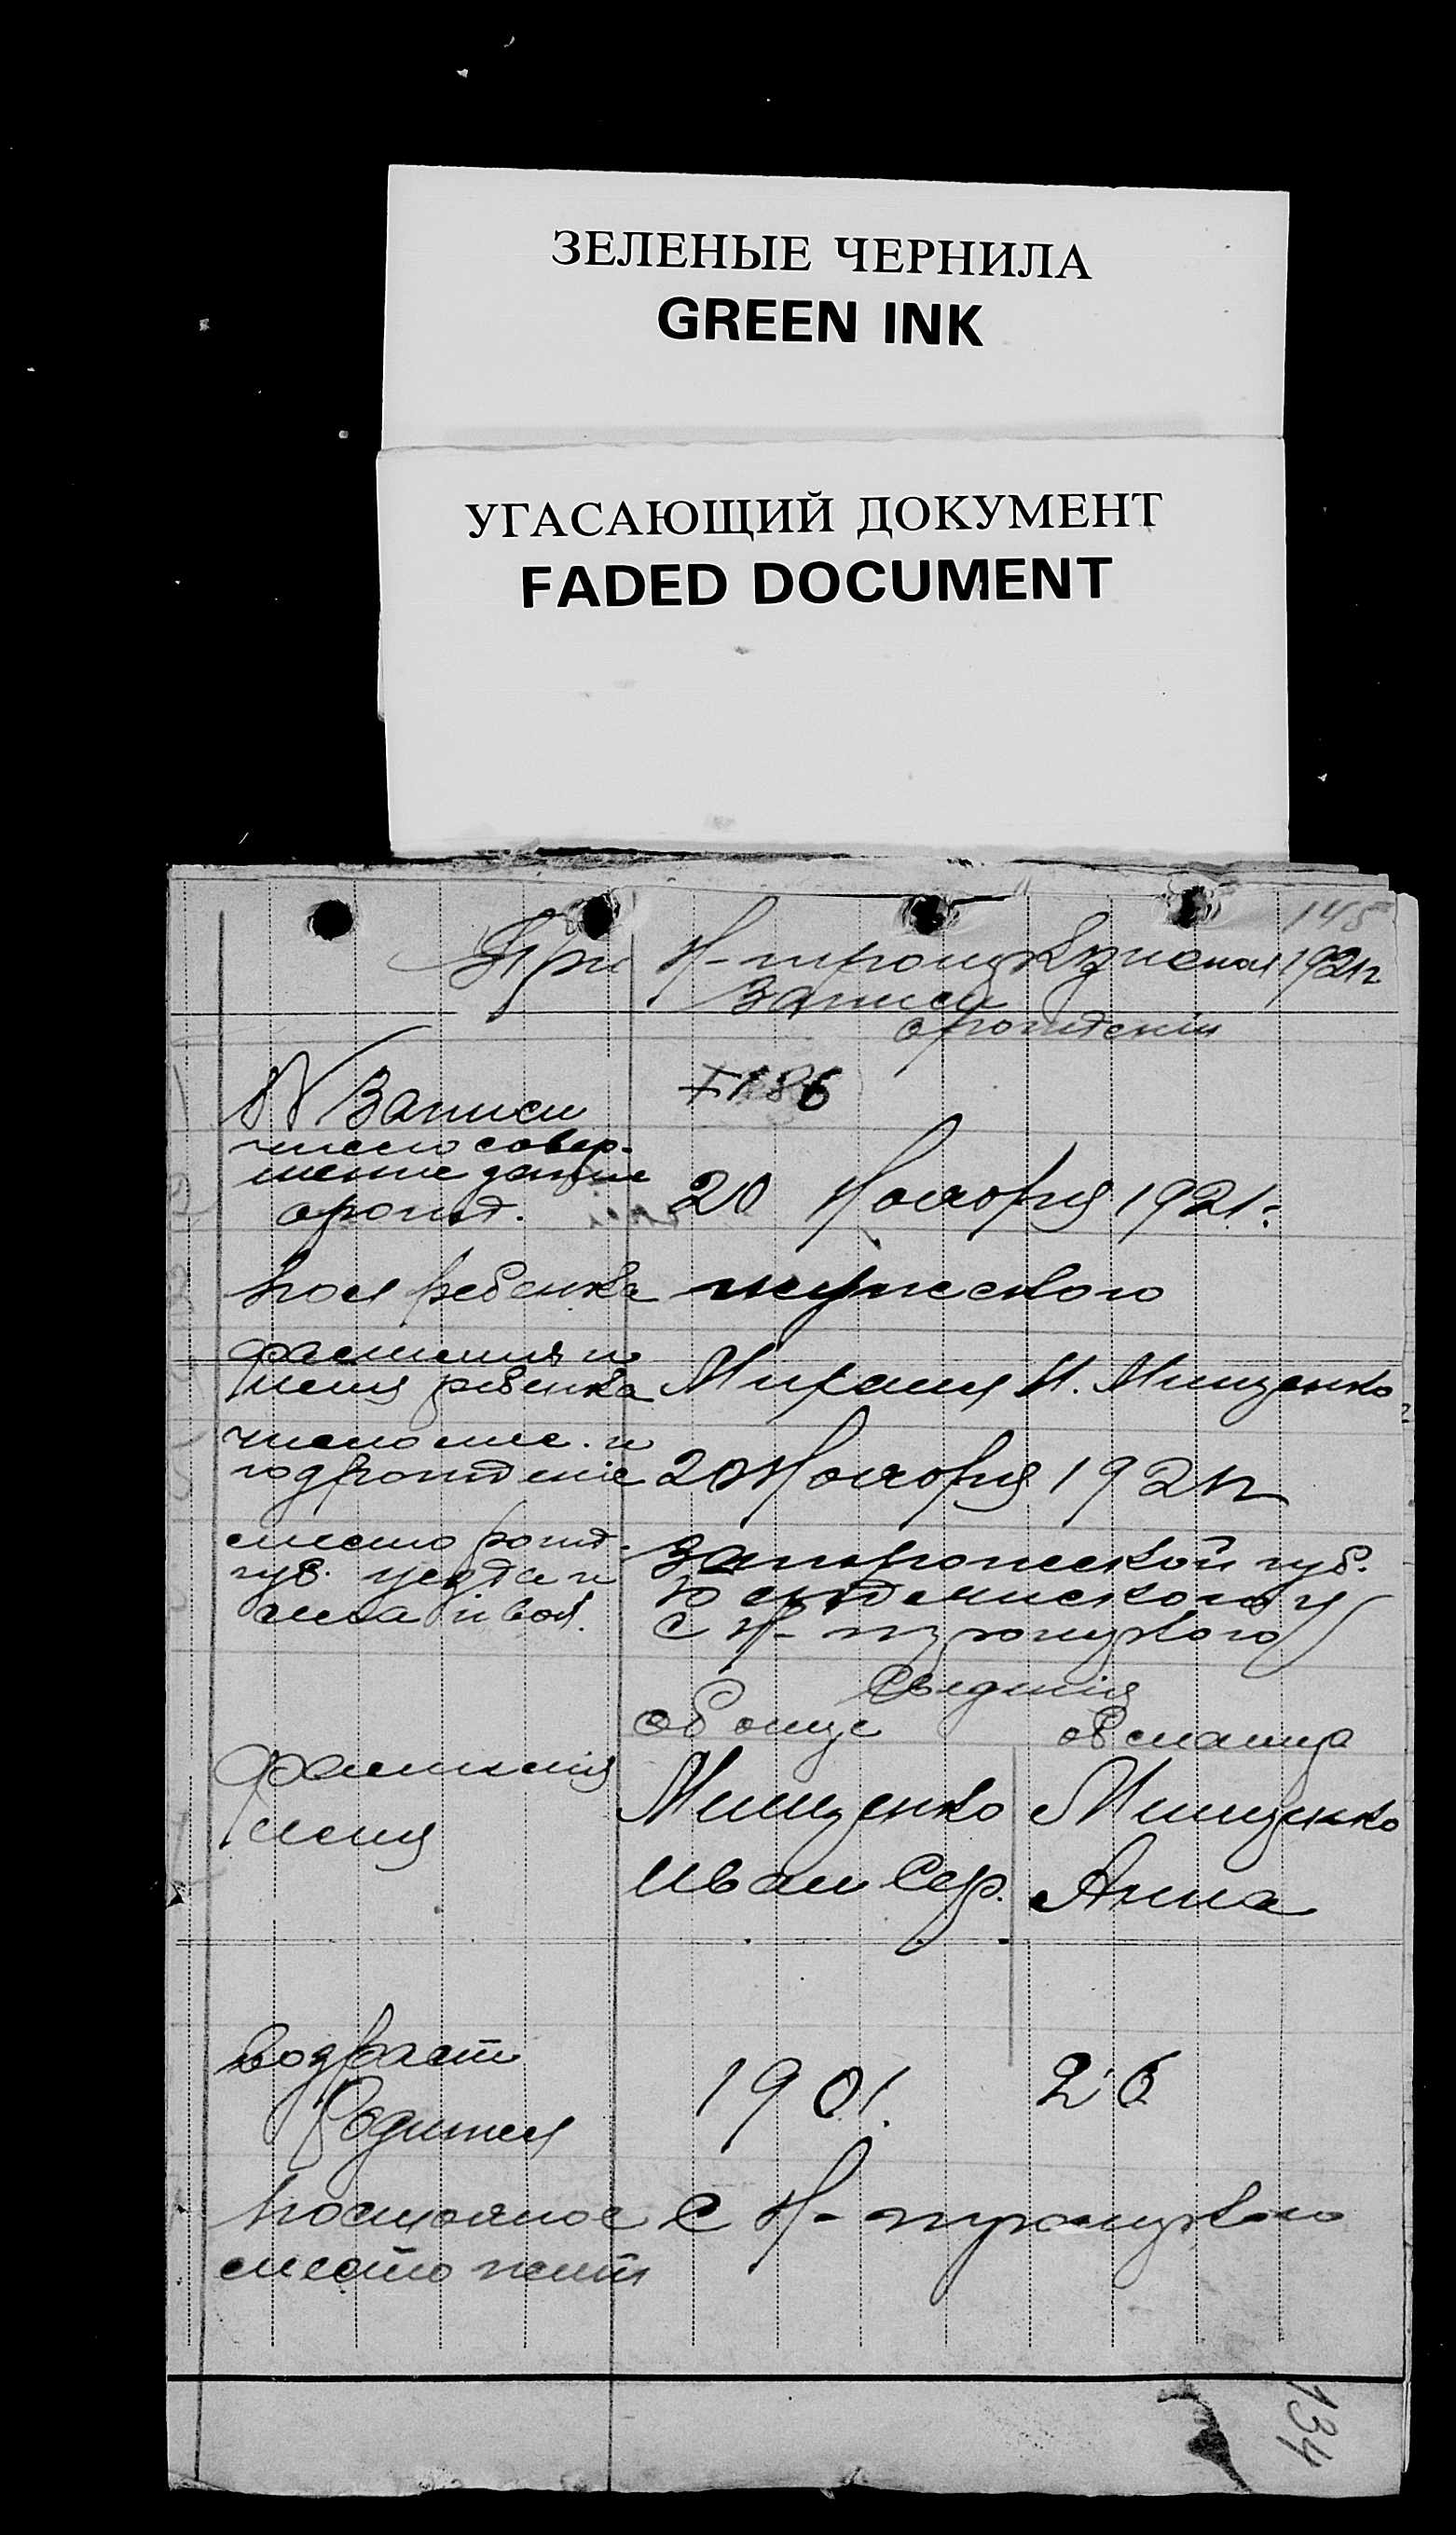 ЗЕЛЕНЫЕ ЧЕРНИЛА
GREEN INK
УГАСАЮЩИЙ ДОКУМЕНТ
FADED DOCUMENT
145
При Н-троицк 1921г
Записи
о рождении
№ Записи 186
число совер-
шение
о рожд. 20 Ноября 1921г.
пол ребенка мужского
фамилия и
имя ребенка Михаил И. Мищенко
число мес. и
год рождение 20 Ноября 1921г
место рожд. Запорожской губ.
губ. уезда и Бердянского у
села и вол. с Н-троицкого
Сведения
об отце об матери
фамилия Мищенко Мищенко
имя Иван Сер. Анна
возраст 1901. 26
Родител
постояное с Н-троицкого
место жит
134